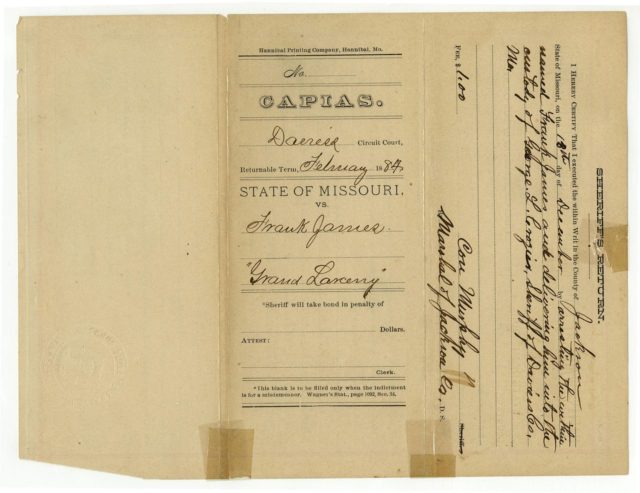 Hannibal Printing Company, Hannibal, Mo.
No.
CAPIAS.
Daviess Circuit Court,
Returnable Term, February 1884
STATE OF MISSOURI,
VS.
Frank James.
"Grand Larceny"
*Sheriff will take bond in penalty of
Dollars.
ATTEST:
Clerk.
*This blank is to be filled only when the indictment
is for a misdemeanor. Wagner's Stat., page 1092, Sec. 24.
SHERIFF'S RETURN.
I HEREBY CERTIFY That I executed the within Writ in the County of Jackson
State of Missouri, on the 18th day of December by arresting the within
named Frank James and delivering him into the
custody of George L. Crozier, Sheriff of Daviess Co.
Mo.
FEE, $ 1.00
Con Murphy
Marshal of Jackson Co. D. S.